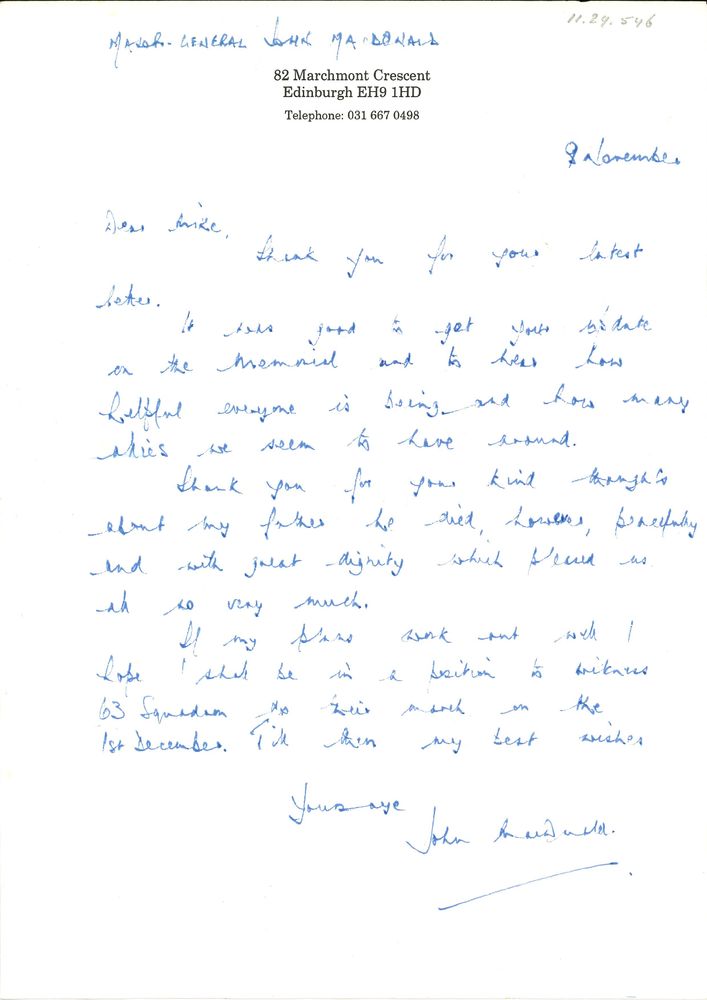 11.24.546
MAJOR-GENERAL JOHN MACDONALD
82 Marchmont Crescent
Edinburgh EH9 1HD
Telephone: 031 667 0498
8 November
Dear Mike,
Thank you for your latest
letter.
It was good to get your update
on the Memorial and to hear how
helpful everyone is being and how many
allies we seem to have around.
Thank you for your kind thoughts
about my father he died, however, peacefully
and with great dignity which pleased us
all so very much.
If my plans work out well I
hope I shall be in a position to witness
63 Squadron do their march on the
1st December. Till then my best wishes
Yours aye
John MacDonald.